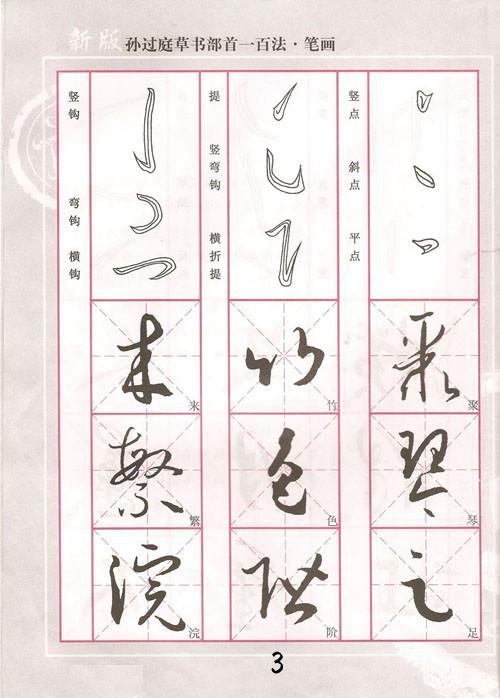 新版 孙过庭草书部首一百法·笔画
竖钩
弯钩
横钩
提
竖弯钩
横折提
竖点
斜点
平点
来
竹
聚
繁
色
琴
浣
阶
足
3